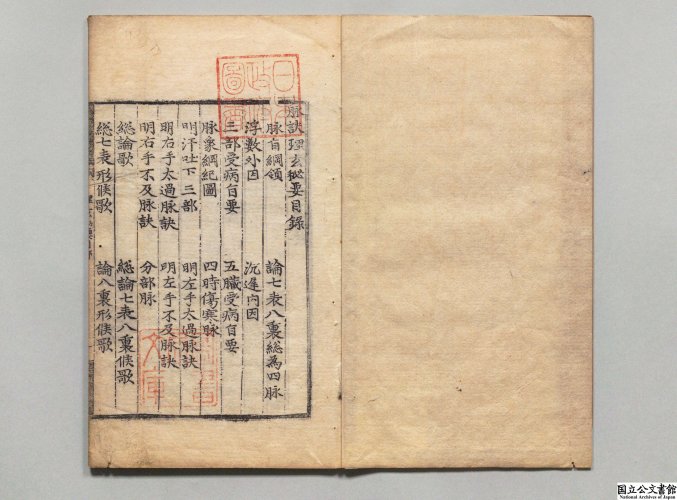 脉訣理玄秘要目錄
脉自綱領　論七表八裏総為四脉
浮數外因　沉遲内因
三部受病自要　五臓受病自要
脉象綱紀圖　四時傷寒脉
明汗吐下三部　明左手太過脉訣
明右手太過脉訣　明左手不及脉訣
明右手不及脉訣　分部脉
総論歌　総論七表八裏候歌
総七表形候歌　論八裏形候歌
文庫
国立公文書館
National Archives of Japan